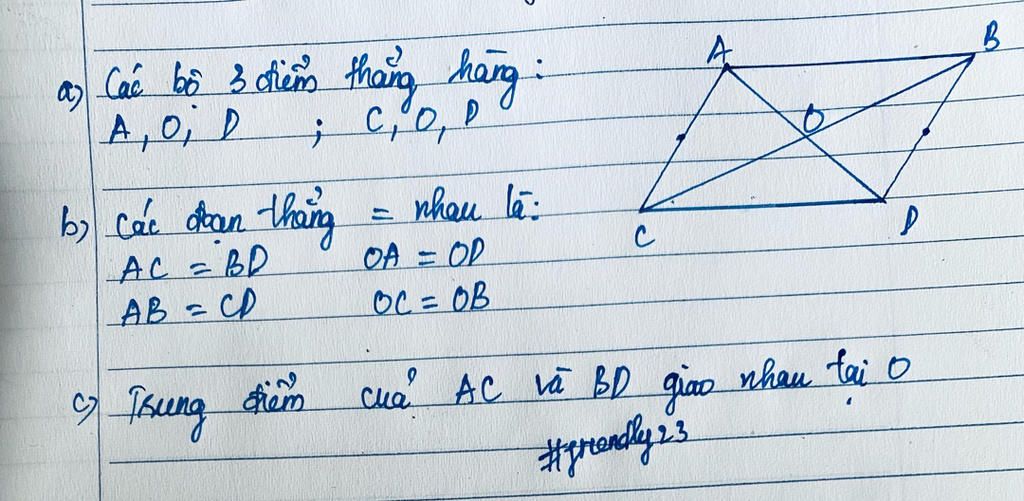 a) Các bộ 3 điểm thẳng hàng :
A, O, D ; C, O, D
b) Các đoạn thẳng = nhau là:
AC = BD OA = OD
AB = CD OC = OB
c) Trung điểm của AC và BD giao nhau tại O
#friendly23
A
B
O
C
D